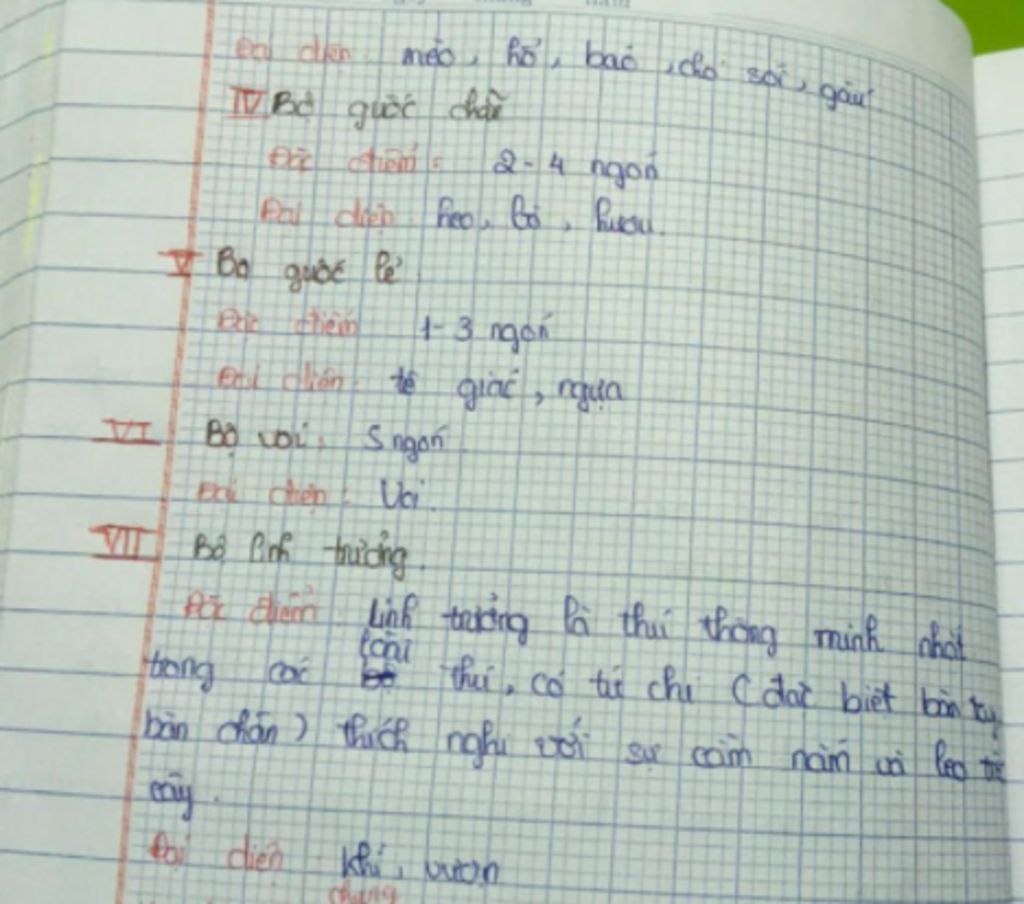 Đại diện: mèo, hổ, báo, chó sói, gấu
IV Bộ guốc chẵn
Đặc điểm: 2-4 ngón
Đại diện: heo, bò, hươu.
V Bộ guốc lẻ
Đặc điểm 1-3 ngón
Đại diện: tê giác, ngựa
VI Bộ voi: 5 ngón
Đại diện: Voi.
VII Bộ linh trưởng.
Đặc điểm: Linh trưởng là thú thông minh nhất
loài
trong các thú, có tứ chi (đặc biệt bàn tay
bàn chân) thích nghi với sự cầm nắm và leo
cây.
Đại diện: khỉ, vượn
chung